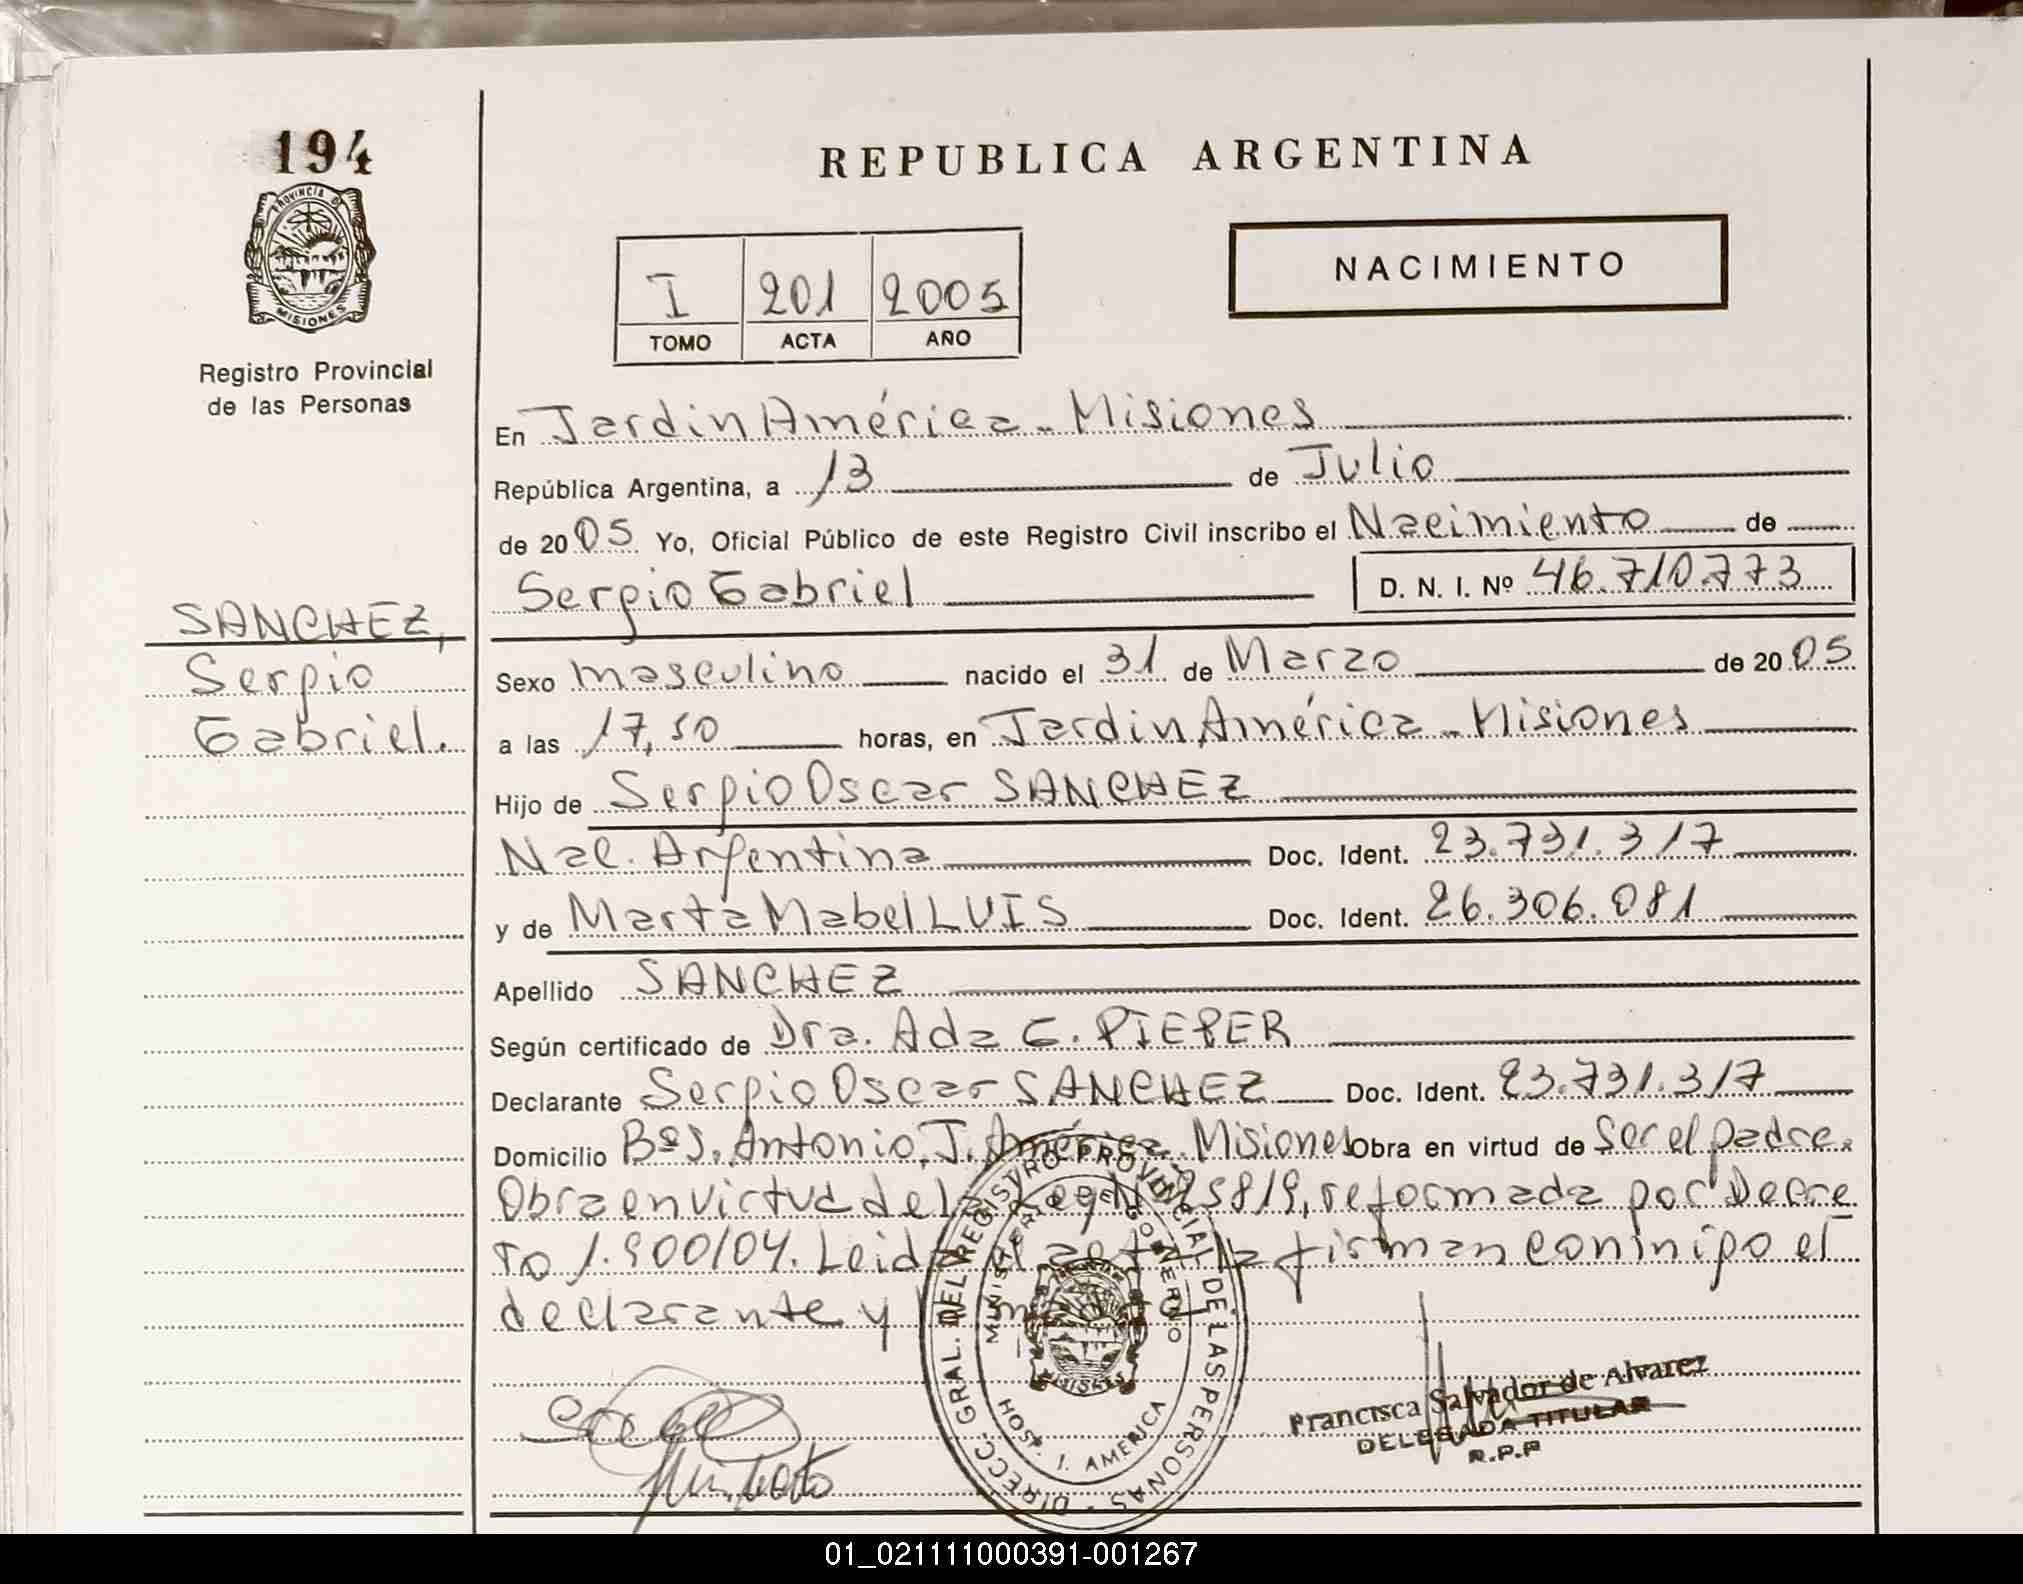 194
PROVINCIA D
MISIONES
Registro Provincial
de las Personas
SANCHEZ,
Sergio
Gabriel.
REPUBLICA ARGENTINA
I 201 2005
TOMO ACTA AÑO
NACIMIENTO
En Jardin América - Misiones
República Argentina, a 13 de Julio
de 2005 Yo, Oficial Público de este Registro Civil inscribo el Nacimiento de
Sergio Gabriel D. N. I. Nº 46.710.773
Sexo masculino nacido el 31 de Marzo de 2005
a las 17,50 horas, en Jardin América - Misiones
Hijo de Sergio Oscar SANCHEZ
Nac. Argentina Doc. Ident. 23.731.317
y de Marta Mabel LUIS Doc. Ident. 26.306.081
Apellido SANCHEZ
Según certificado de Dra. Ada G. PIEPER
Declarante Sergio Oscar SANCHEZ Doc. Ident. 23.731.317
Domicilio Bº S. Antonio, J. América - Misiones Obra en virtud de Ser el padre.
Obra en virtud de la Ley Nº 25819, reformada por Decre
to 1.900/04. Leida el acta la firman conmigo el
declarante y
DIRECC. GRAL. DEL REGISTRO PROVINCIAL DE LAS PERSONAS -
MINISTERIO DE GOBIERNO
MISIONES
HOSP. J. AMERICA
Francisca Salvador de Alvarez
DELEGADA TITULAR
R.P.P
01_021111000391-001267